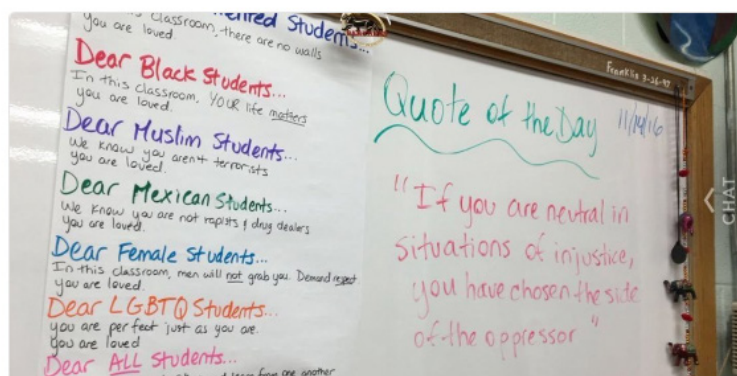 Students...
In this classroom, there are no walls
you are loved.
Dear Black Students...
In this classroom, YOUR life matters
you are loved.
Dear Muslim Students...
We know you aren't terrorists
you are loved.
Dear Mexican Students...
We know you are not rapists & drug dealers
you are loved.
Dear Female Students...
In this classroom, men will not grab you. Demand respect
you are loved.
Dear LGBTQ Students...
you are perfect just as you are.
you are loved
Dear ALL Students...
learn from one another
Franklin 3-26-97
Quote of the Day
11/14/16
"If you are neutral in
situations of injustice,
you have chosen the side
of the oppressor"
CHAT